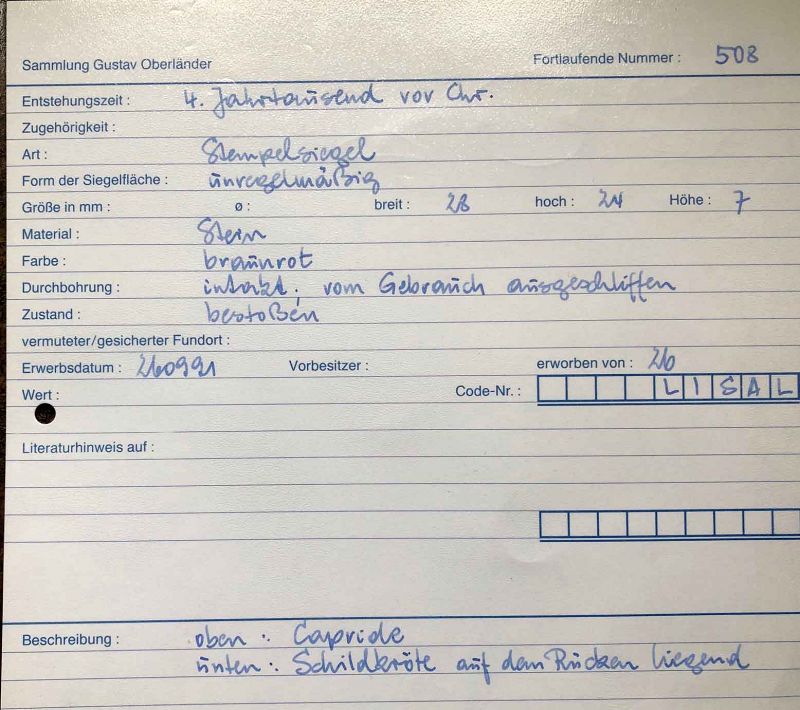 Sammlung Gustav Oberländer Fortlaufende Nummer : 508
Entstehungszeit : 4. Jahrtausend vor Chr.
Zugehörigkeit :
Art : Stempelsiegel
Form der Siegelfläche : unregelmäßig
Größe in mm : ø : breit : 28 hoch : 24 Höhe : 7
Material : Stein
Farbe : braunrot
Durchbohrung : intakt. vom Gebrauch ausgeschliffen
Zustand : bestoßen
vermuteter/gesicherter Fundort :
Erwerbsdatum : 260991 Vorbesitzer : erworben von : 26
Wert : Code-Nr. : LISAL
Literaturhinweis auf :
Beschreibung : oben : Capride
unten : Schildkröte auf dem Rücken liegend